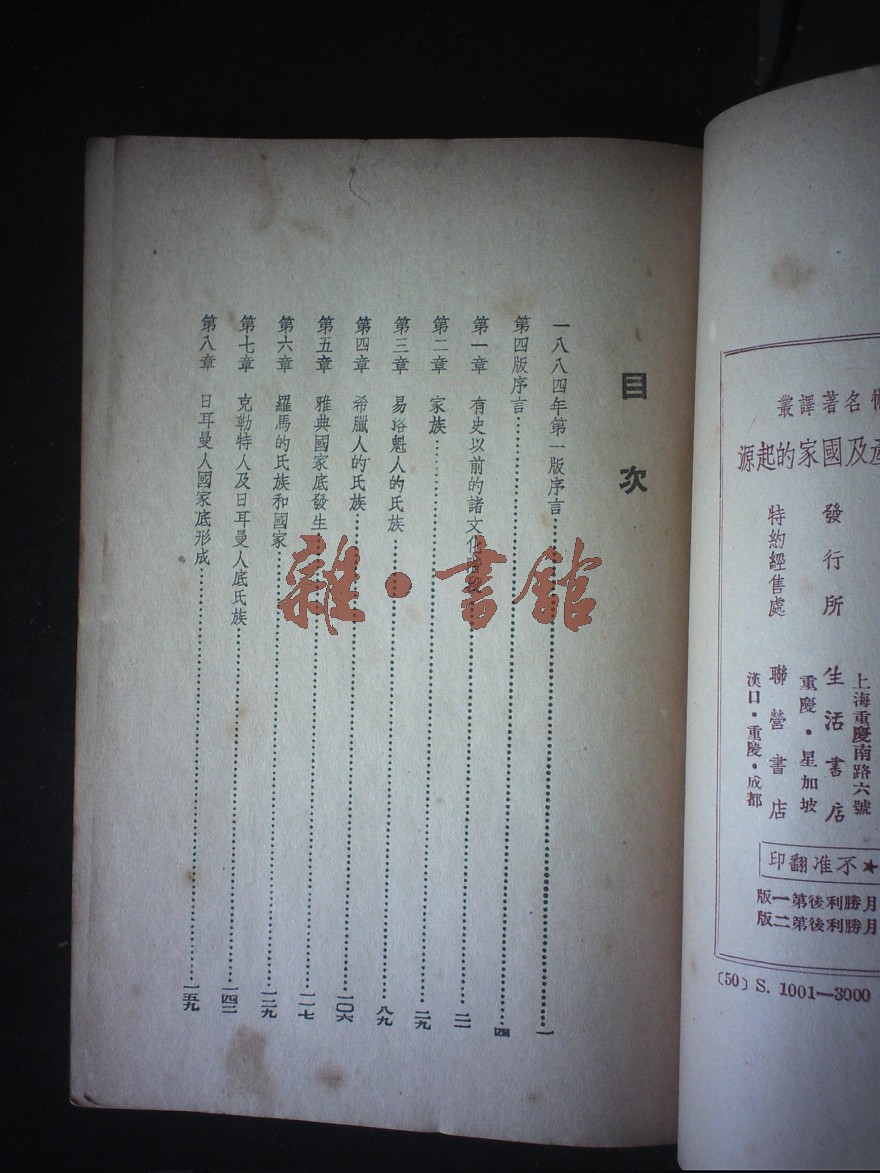 叢譯著名
源起的家國及產
發行所
特約經售處
上海重慶南路六號
生活書店
重慶・星加坡
聯營書店
漢口・重慶・成都
印翻准不★
版一第後利勝月
版二第後利勝月
(50) S. 1001—3000
目次
一八八四年第一版序言 一
第四版序言 四
第一章 有史以前的諸文化階段 二一
第二章 家族 二九
第三章 易洛魁人的氏族 八九
第四章 希臘人的氏族 一〇六
第五章 雅典國家底發生 一一七
第六章 羅馬的氏族和國家 一二九
第七章 克勒特人及日耳曼人底氏族 一四二
第八章 日耳曼人國家底形成 一五九
雜・書館